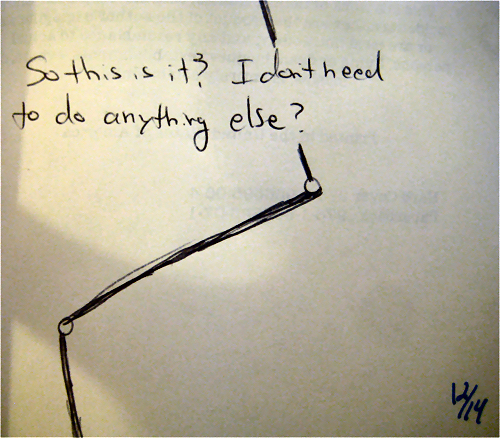 So this is it? I don't need
to do anything else?
12/14